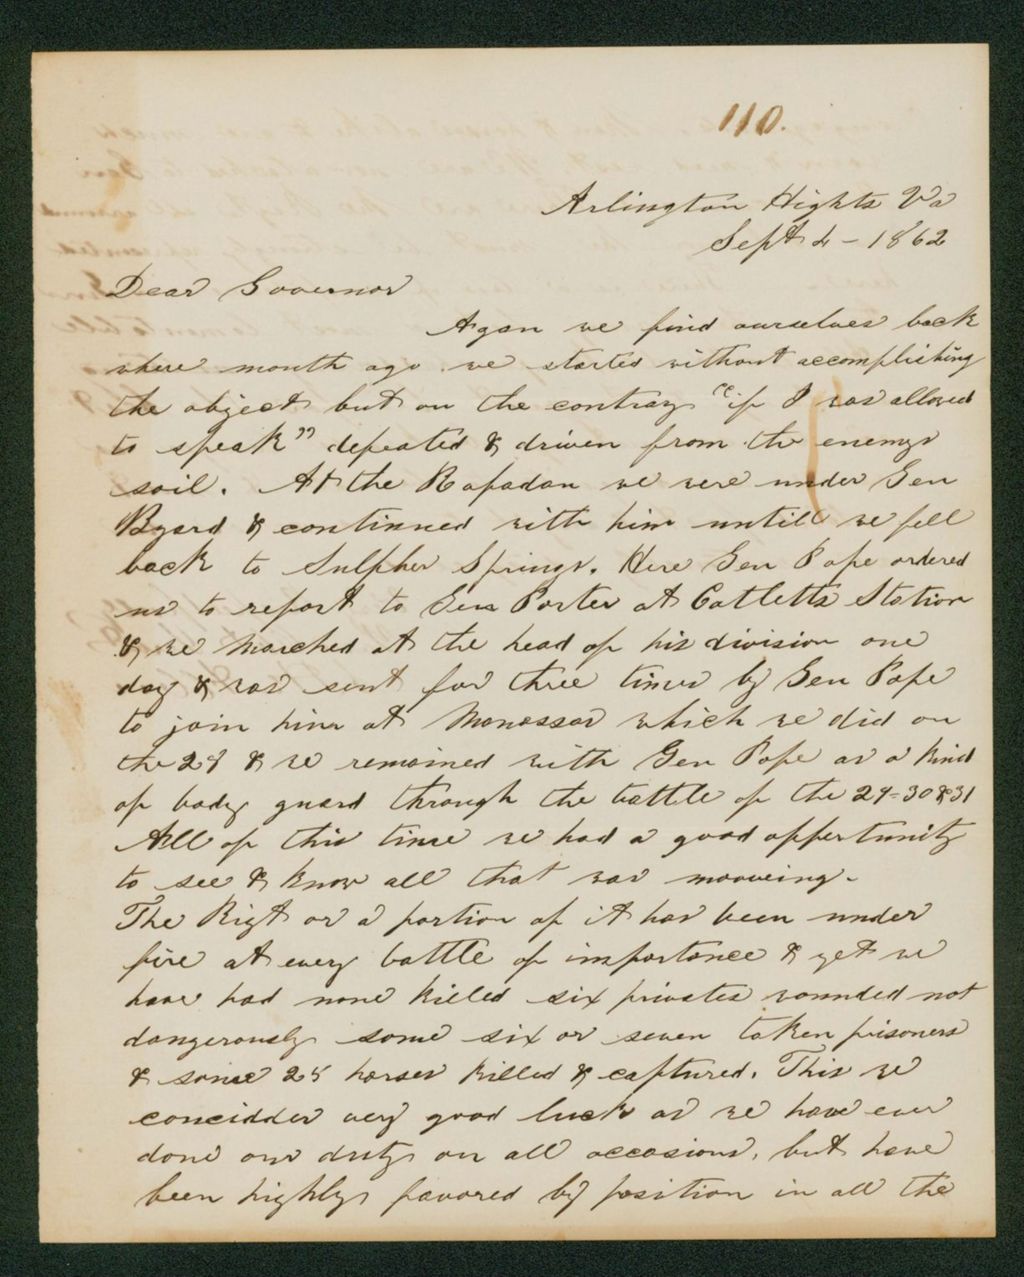 110.
Arlington Hights Va
Sept 4 - 1862
Dear Governor
Agan we find ourselves back
where month ago we started without accomplishing
the object but on the contray "if I was allowed
to speak" defeated & driven from the enemys
soil. At the Rapadan we were under Gen
Byard & continued with him untill we fell
back to Sulpher Springs. Here Gen Pope ordered
us to report to Gen Porter at Catletts Station
& we marched at the head of his division one
day & was sent for three times by Gen Pope
to join him at Manassas which we did on
the & we remained with Gen Pope as a kind
of body guard through the battle of the 29-30 & 31
All of this time we had a good oppertunity
to see & know all that was mooveing.
The Rigt or a portion of it has been under
fire at every battle of importance & yet we
have had none killed six privates wounded not
dangerously some six or seven taken prisoners
& some 25 horses killed & captured. This we
concidder very good luck as we have ever
done our duty on all occasions, but have
been highly favored by position in all the